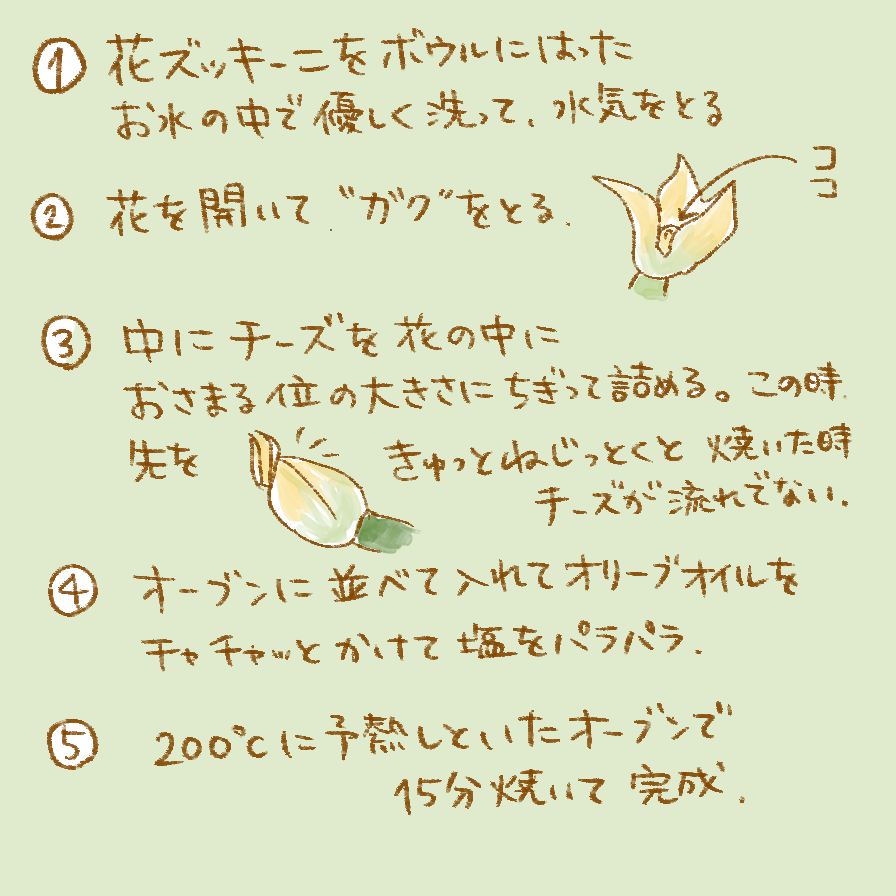 ① 花ズッキーニをボウルにはった
お水の中で優しく洗って、水気をとる
② 花を開いて〝ガク〟をとる.
ココ
③ 中にチーズを花の中に
おさまる位の大きさにちぎって詰める。この時.
先を きゅっとねじっとくと 焼いた時
チーズが流れでない.
④ オーブンに並べて入れてオリーブオイルを
チャチャッとかけて塩をパラパラ.
⑤ 200℃に予熱しといたオーブンで
15分焼いて完成.